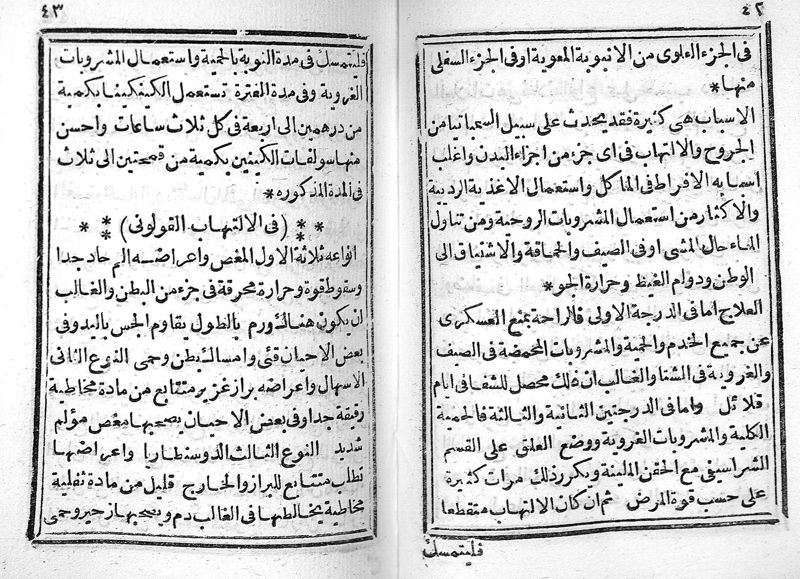 ٤٢
فى الجزء العلوى من الانبوبة المعوية او فى الجزء السفلى
منها *
الاسباب هى كثيرة فقد يحدث على سبيل السمباتيا من
الجروح والالتهاب فى اى جزء من اجزاء البدن واغلب
اسبابه الافراط فى المآكل واستعمال الاغذية الردية
والاكثار من استعمال المشروبات الروحية ومن تناول
الماء حال المشى او فى الصيف والحماقة والاشتياق الى
الوطن ودوام الغيظ وحرارة الجو *
العلاج اما فى الدرجة الاولى فالراحة بمنع العسكرى
عن جميع الخدم والحمية والمشروبات المحمضة فى الصيف
والغروية فى الشتا والغالب ان ذلك محصل للشفا فى ايام
قلائل واما فى الدرجتين الثانية والثالثة فالحمية
الكلية والمشروبات الغروية ووضع العلق على القسم
الشراسيفى مع الحقن الملينة ويكرر ذلك مرات كثيرة
على حسب قوة المرض ثم ان كان الالتهاب متقطعا
فليتمسك
٤٣
فليتمسك فى مدة النوبة بالحمية واستعمال المشروبات
الغروية وفى مدة الفترة تستعمل الكينكينا بكمية
من درهمين الى اربعة فى كل ثلاث ساعات واحسن
منها سولفات الكينين بكمية من قمحتين الى ثلاث
فى المدة المذكوره *
* * (فى الالتهاب القولونى) * *
انواعه ثلاثة الاول المغص واعراضه الم حاد جدا
وسقوط قوة وحرارة محرقة فى جزء من البطن والغالب
ان يكون هناك ورم بالطول يقاوم الجس باليد وفى
بعض الاحيان قئ وامساك بطن وحمى النوع الثانى
الاسهال واعراضه براز غزير متتابع من مادة مخاطية
رقيقة جدا وفى بعض الاحيان يصحبها مغص مؤلم
شديد النوع الثالث الدوسنطاريا واعراضها
تطلب متتابع للبراز والخارج قليل من مادة ثفلية
مخاطية يخالطها فى الغالب دم ويصحبها زحير وحمى